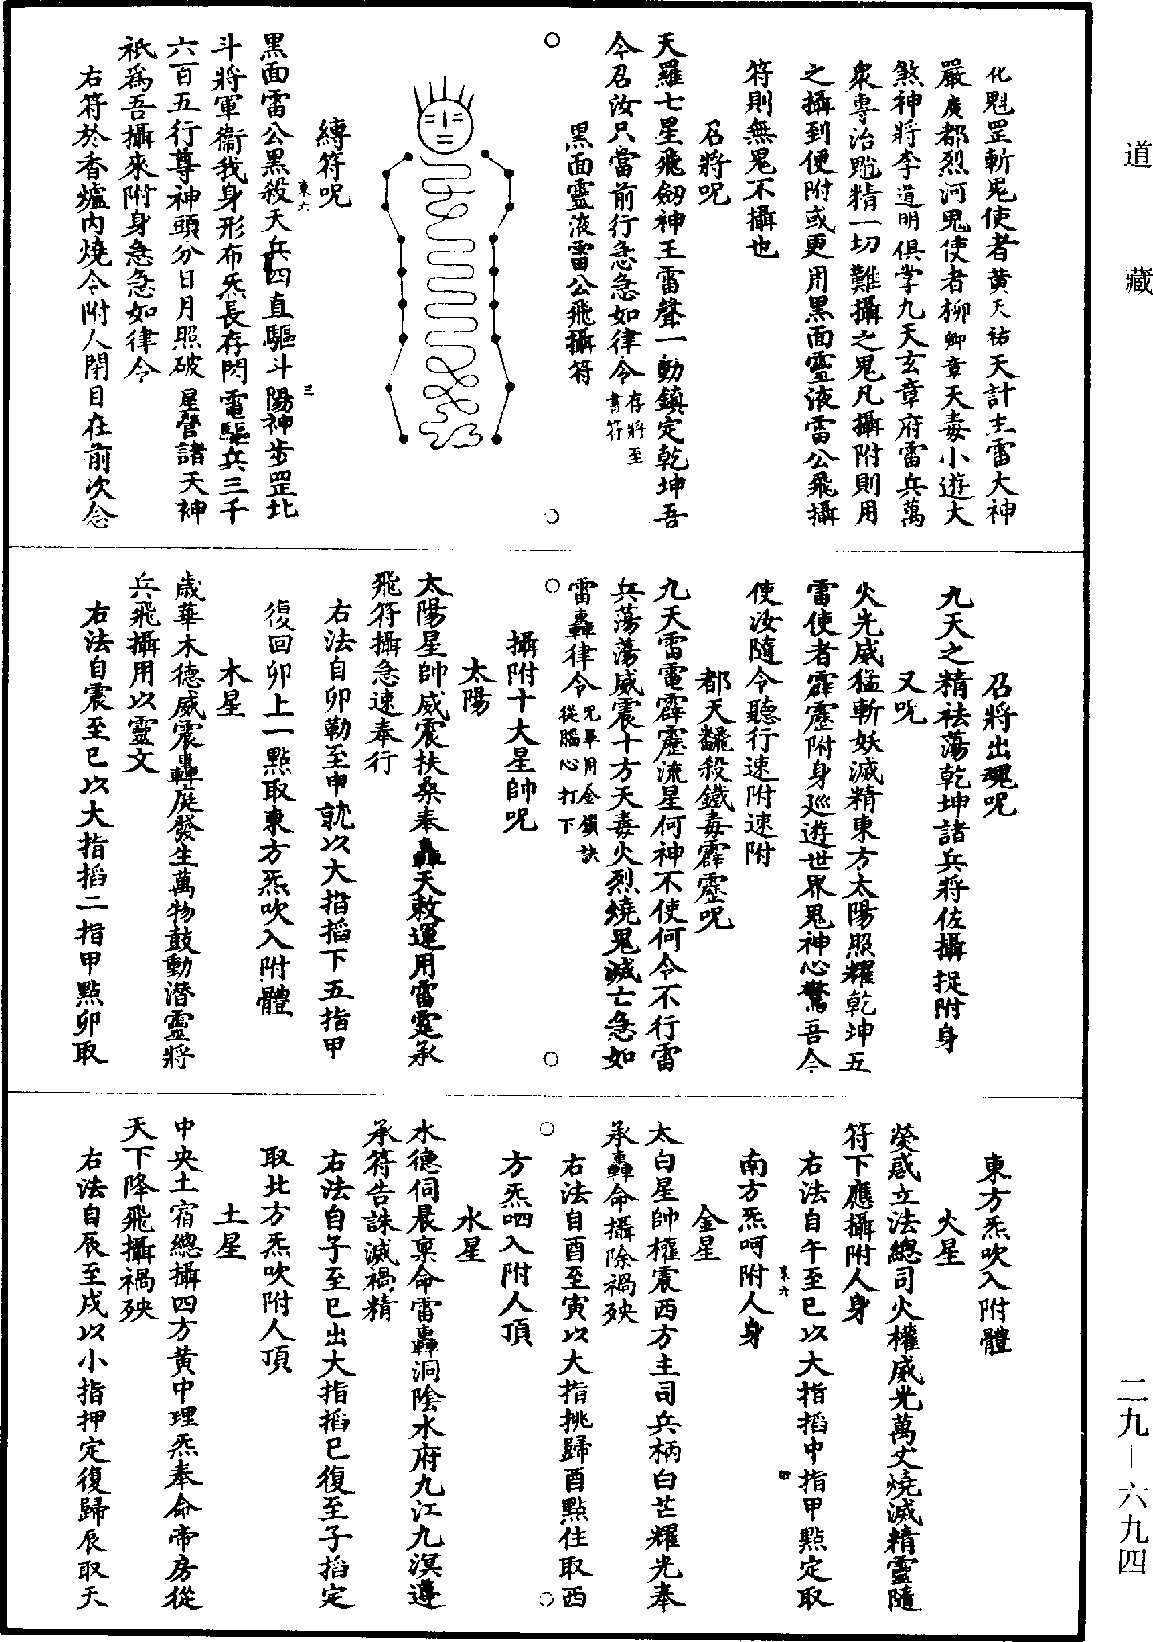 道藏
化魁罡斬鬼使者黃天祐天計主雷大神
嚴廣都烈河鬼使者柳卿章天毒小遊大
煞神將李道明俱掌九天玄章府雷兵萬
衆專治魈精一切難攝之鬼凡攝附則用
之攝到便附或更用黑面靈液雷公飛攝
符則無鬼不攝也
召將呪
天羅七星飛劒神王雷聲一動鎮定乾坤吾
今召汝只當前行急急如律令存將至書符
黑面靈液雷公飛攝符
縛符呪
黑面雷公黑殺天兵四直驅斗陽神步罡北
斗將軍衞我身形布炁長存閃電驅兵三千
六百五行尊神頭分日月照破星管諸天神
祇爲吾攝來附身急急如律令
右符於香爐內燒令附人閉目在前次念
召將出魂呪
九天之精祛蕩乾坤諸兵將佐攝捉附身
又呪
火光威猛斬妖滅精東方太陽照耀乾坤五
雷使者霹靂附身巡遊世界鬼神心驚吾今
使汝隨令聽行速附速附
都天飜殺鐵毒霹靂呪
九天雷電霹靂流星何神不使何令不行雷
兵蕩蕩威震十方天毒火烈燒鬼滅亡急如
雷轟律令呪畢用金鎖訣從腦心打下
攝附十大星帥呪
太陽
太陽星帥威震扶桑奉轟天敕運用雷霆承
飛符攝急速奉行
右法自卯勒至申就以大指掐下五指甲
復回卯上一點取東方炁吹入附體
木星
歲華木德威震轟庭發生萬物鼓動潛靈將
兵飛攝用以靈文
右法自震至巳以大指掐二指甲點卯取
東方炁吹入附體
火星
熒惑立法總司火權威光萬丈燒滅精靈隨
符下應攝附人身
右法自午至巳以大指掐中指甲點定取
南方炁呵附人身
金星
太白星帥權震西方主司兵柄白芒耀光奉
承轟命攝除禍殃
右法自酉至寅以大指挑歸酉點住取西
方炁呬入附人頂
水星
水德伺晨稟命雷轟洞陰水府九江九溟遵
承符告誅滅禍精
右法自子至巳出大指掐巳復至子掐定
取北方炁吹附人頂
土星
中央土宿總攝四方黃中理炁奉命帝房從
天下降飛攝禍殃
右法自辰至戌以小指押定復歸辰取天
二九—六九四